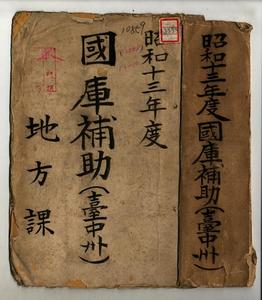 昭和十三年度國庫補助(臺中州)
昭和十三年度
國庫補助(臺中州)
地方課
10859